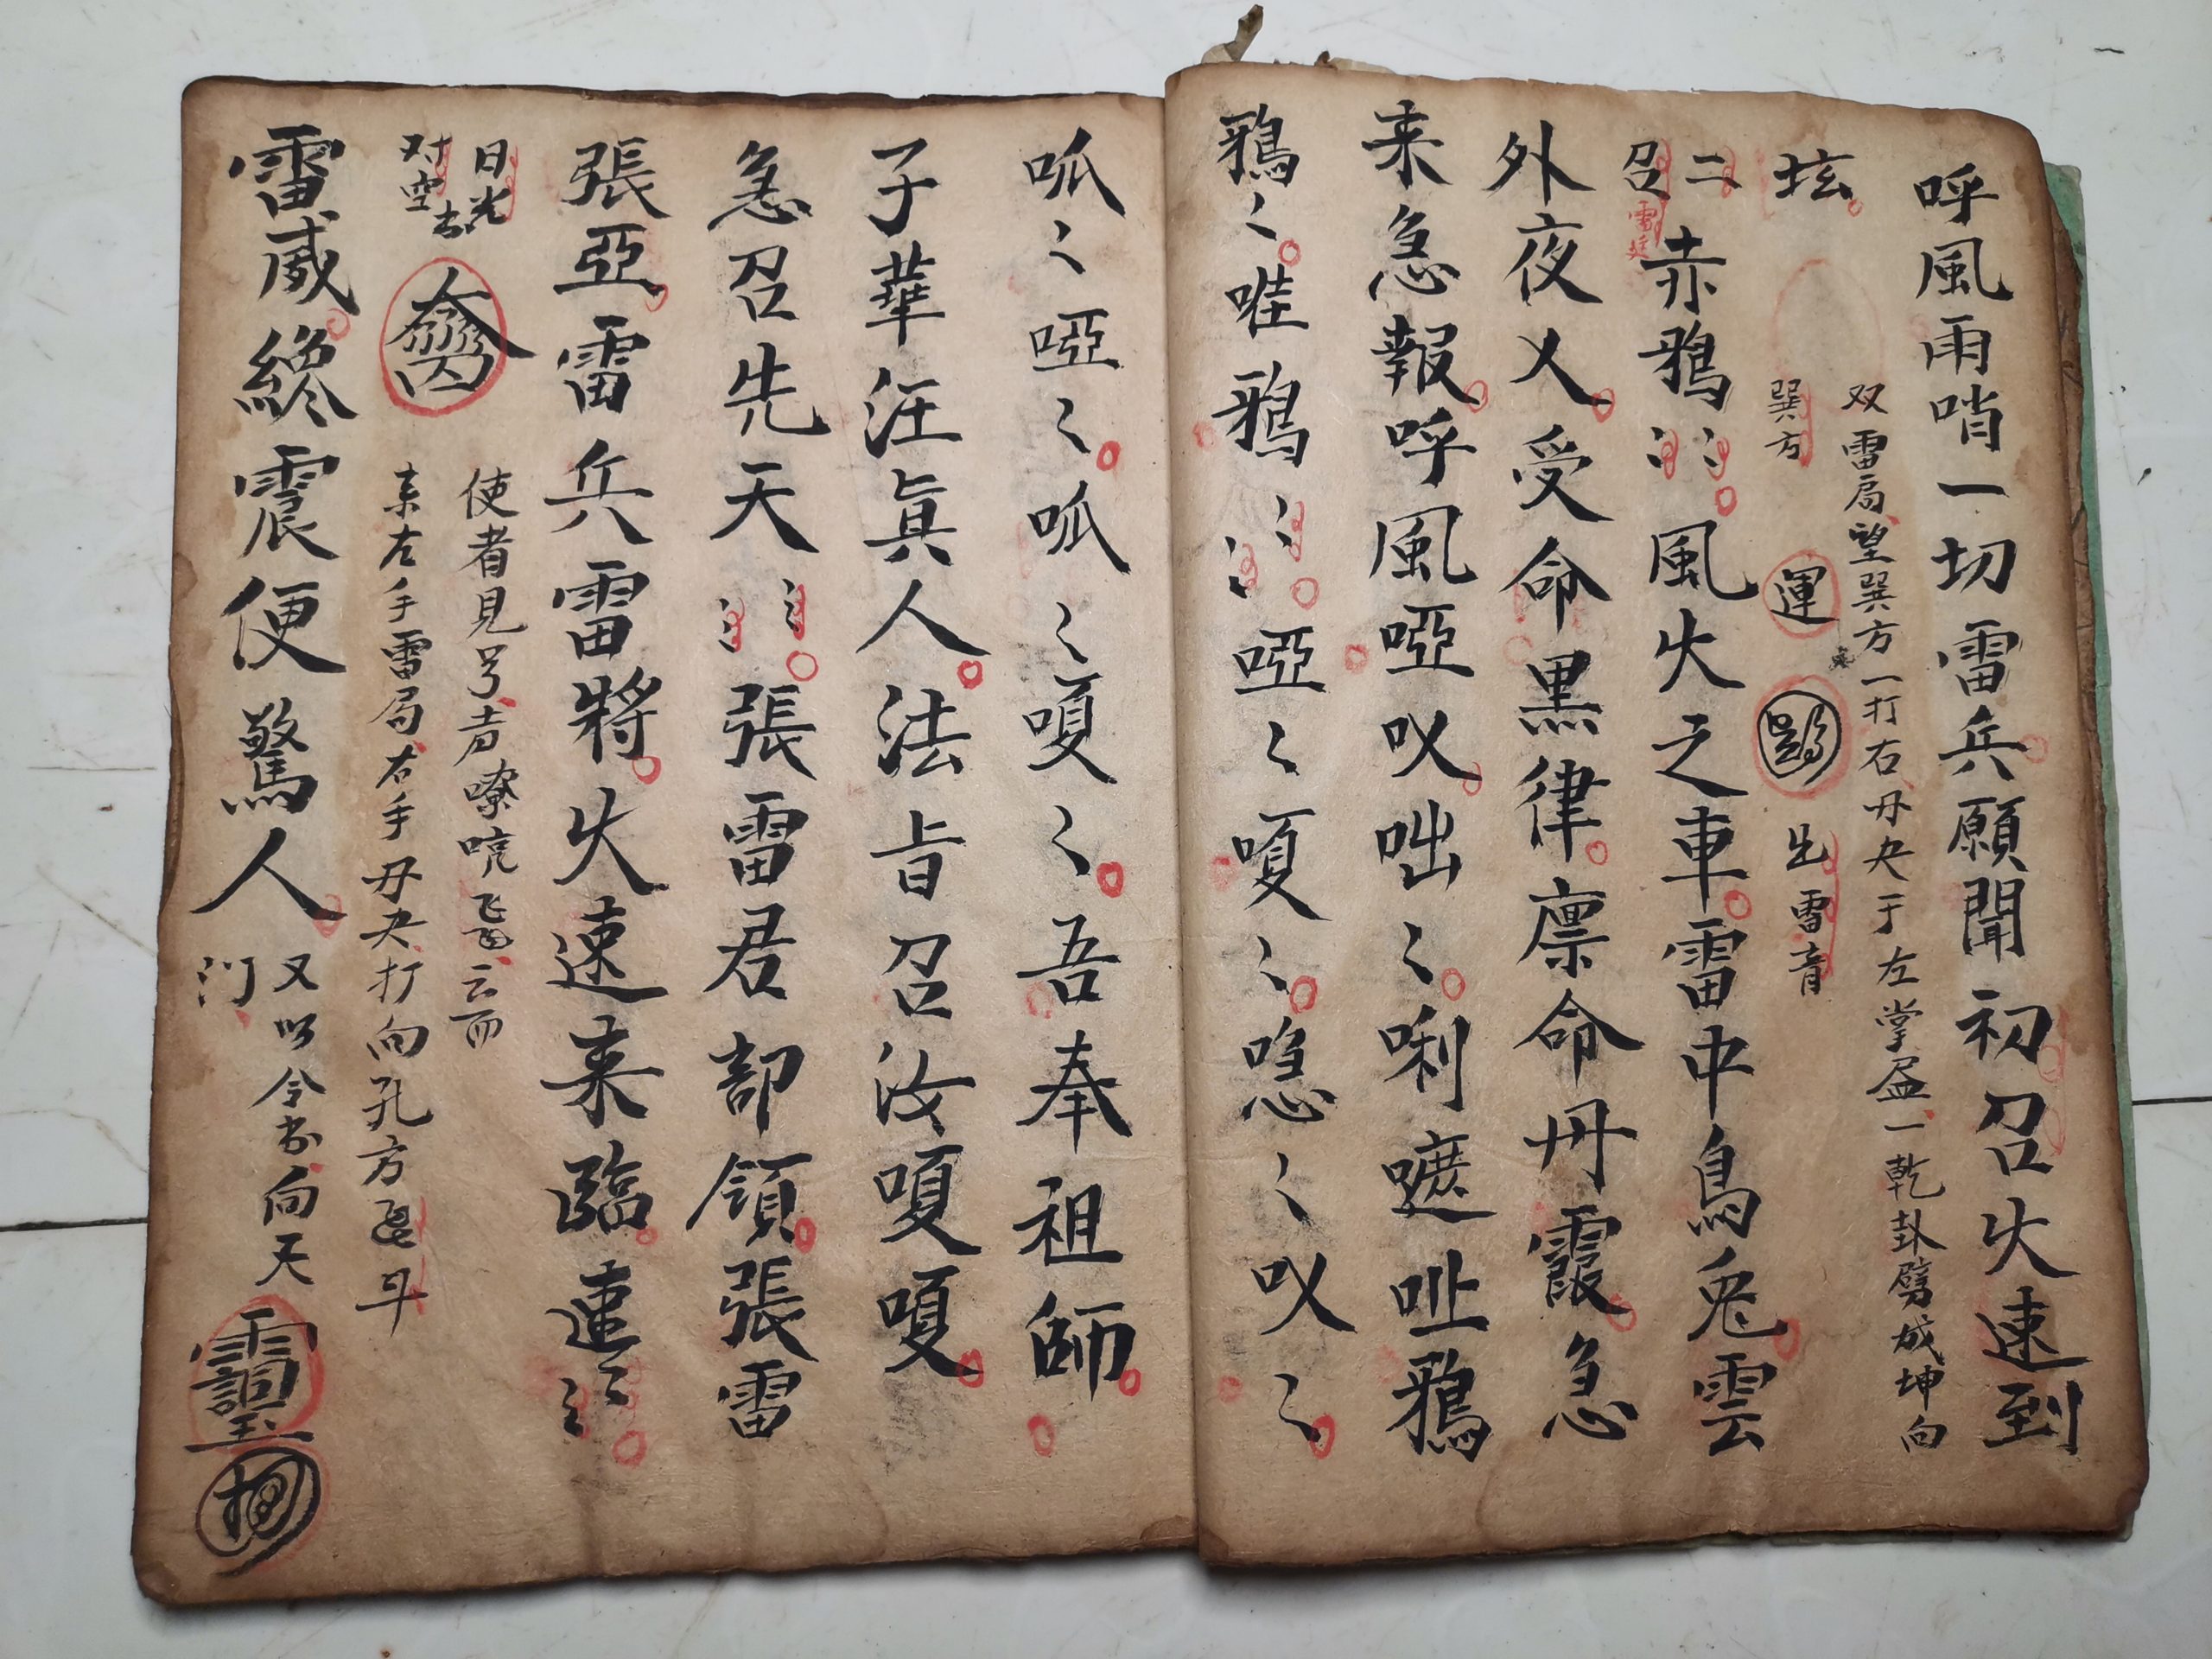 呼風雨哨一切雷兵願聞初召火速到
双雷局望巽方一打右丹央于左掌盈一乾卦劈成坤向
坛
巽方
運
出雷音
二召
雷廷
赤鴉〻風火之車雷中鳥兔雲
外夜乂受命黑律凛命丹霞急
来急報呼風啞㕛咄〻唎嗻呲鴉
鴉〻哇鴉〻啞〻嗄〻㗲〻㕛〻
呱〻啞〻呱〻嗄〻吾奉祖師
子華汪眞人法旨召汝嗄嗄
急召先天〻張雷君部領張雷
張亞雷兵雷將火速来臨速〻
日光
对空
使者見号声嘹吭
云而
来左手雷局右手丹央打向孔方
雷威總震便驚人
又以令书向天
门